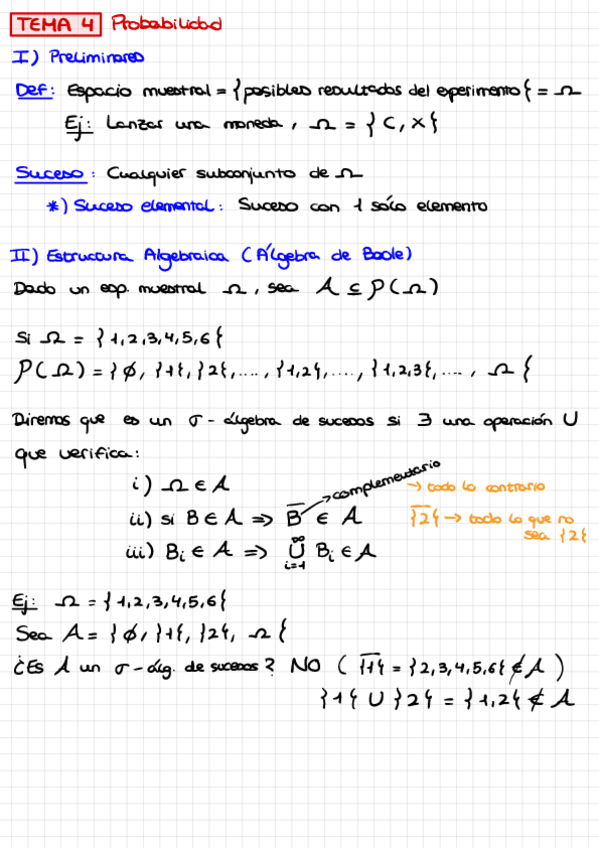 TEMA 4 Probabilidad
I) Preliminares
Def: Espacio muestral = {posibles resultados del experimento} = Ω
Ej: Lanzar una moneda, Ω = {C, X}
Suceso: Cualquier subconjunto de Ω
*) Suceso elemental: Suceso con 1 sólo elemento
II) Estructura Algebraica (Álgebra de Boole)
Dado un esp. muestral Ω, sea A ⊆ P(Ω)
Si Ω = {1,2,3,4,5,6}
P(Ω) = {∅, {1}, {2}, ...., {1,2}, ...., {1,2,3}, ...., Ω}
Diremos que es un σ-álgebra de sucesos si ∃ una operación U
que verifica:
i) Ω ∈ A
complementario → todo lo contrario
ii) si B ∈ A => B̅ ∈ A {2}̅ → todo lo que no
sea {2}
iii) Bi ∈ A => ∞U i=1 Bi ∈ A
Ej: Ω = {1,2,3,4,5,6}
Sea A = {∅, {1}, {2}, Ω}
¿Es A un σ-álg. de sucesos? NO ({1}̅ = {2,3,4,5,6} ∉ A)
{1} U {2} = {1,2} ∉ A